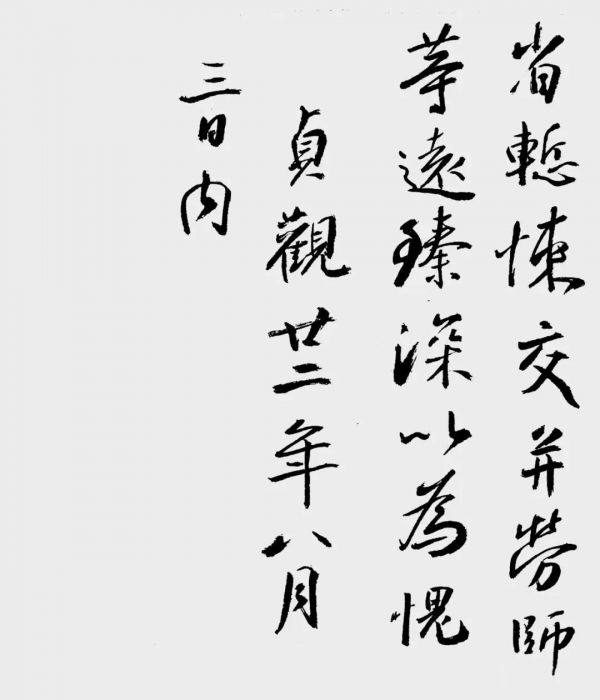 省慙悚交并勞師
等遠臻深以為愧
貞觀廿二年八月
三日内